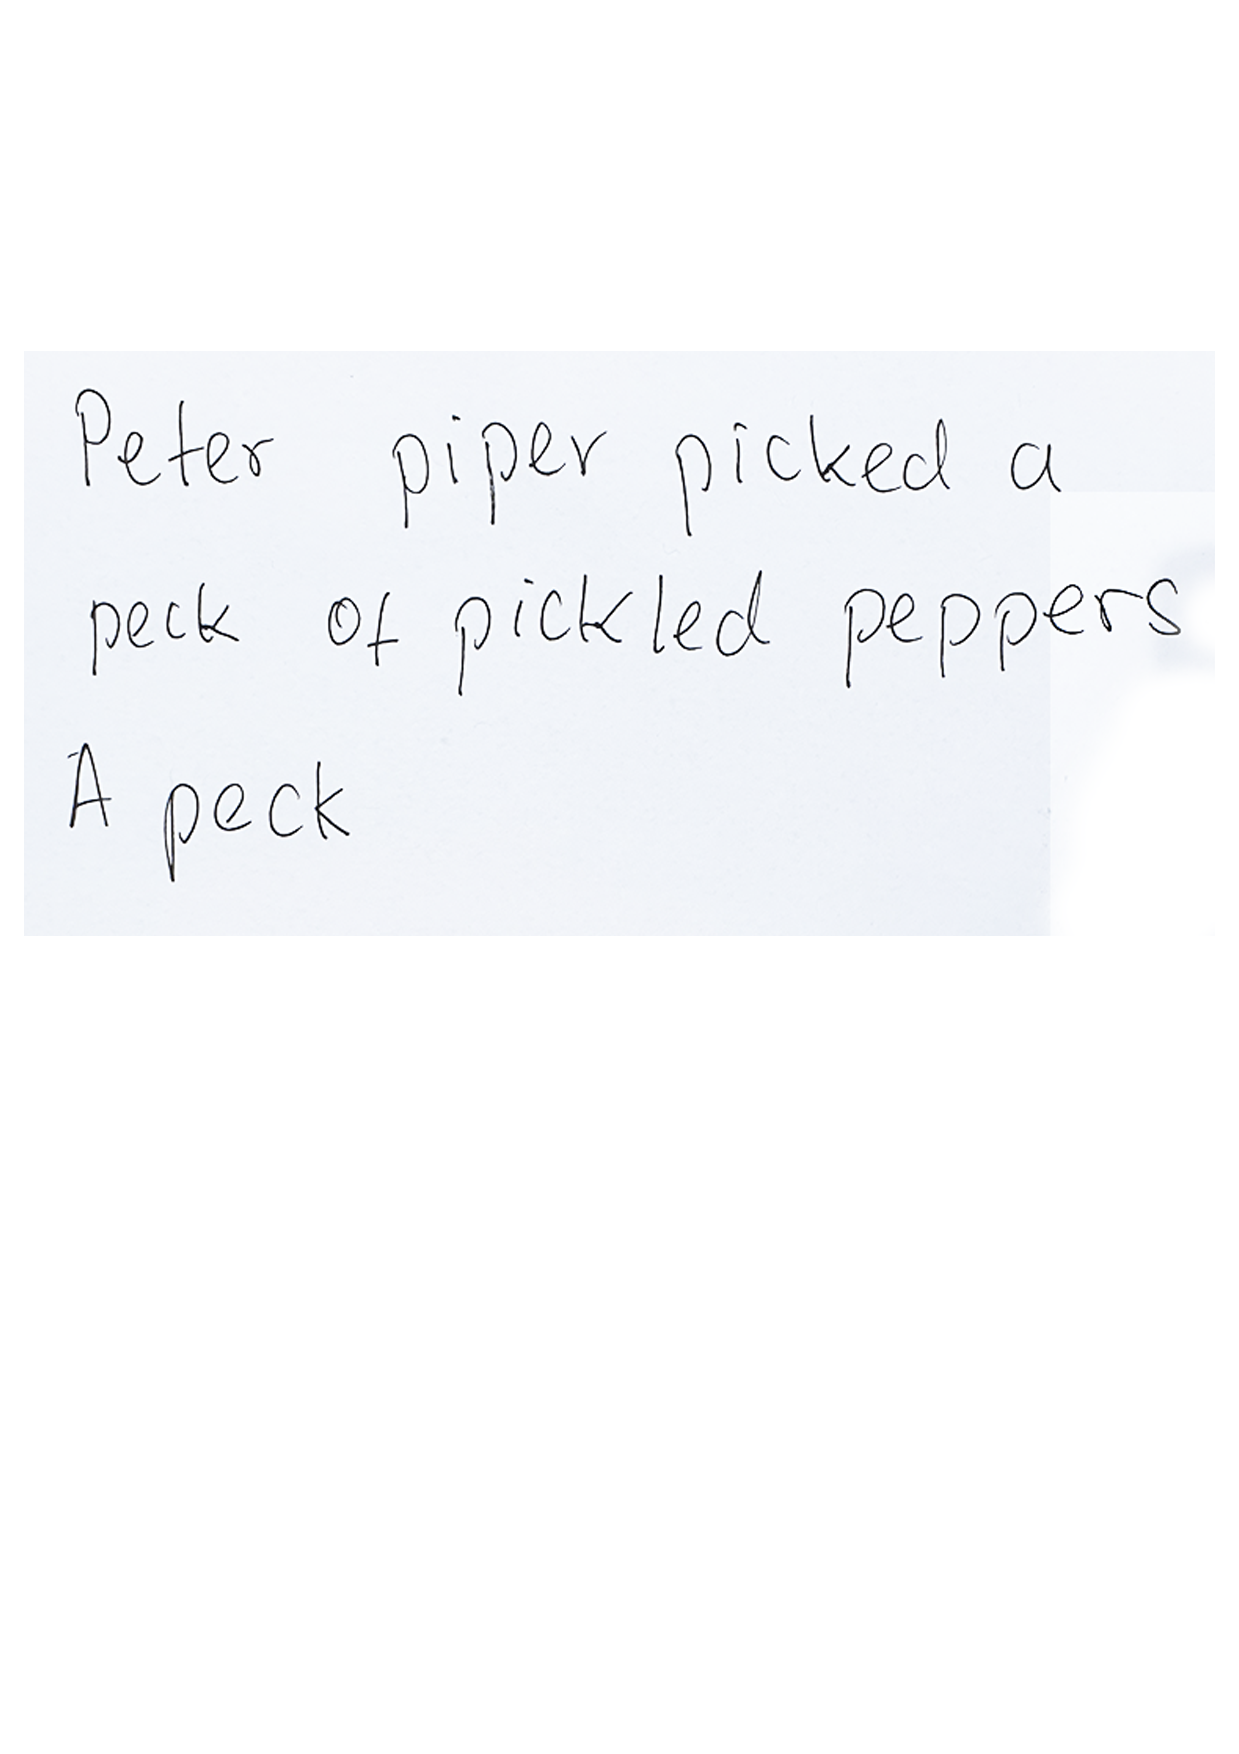 Peter piper picked a
peck of pickled peppers
A peck